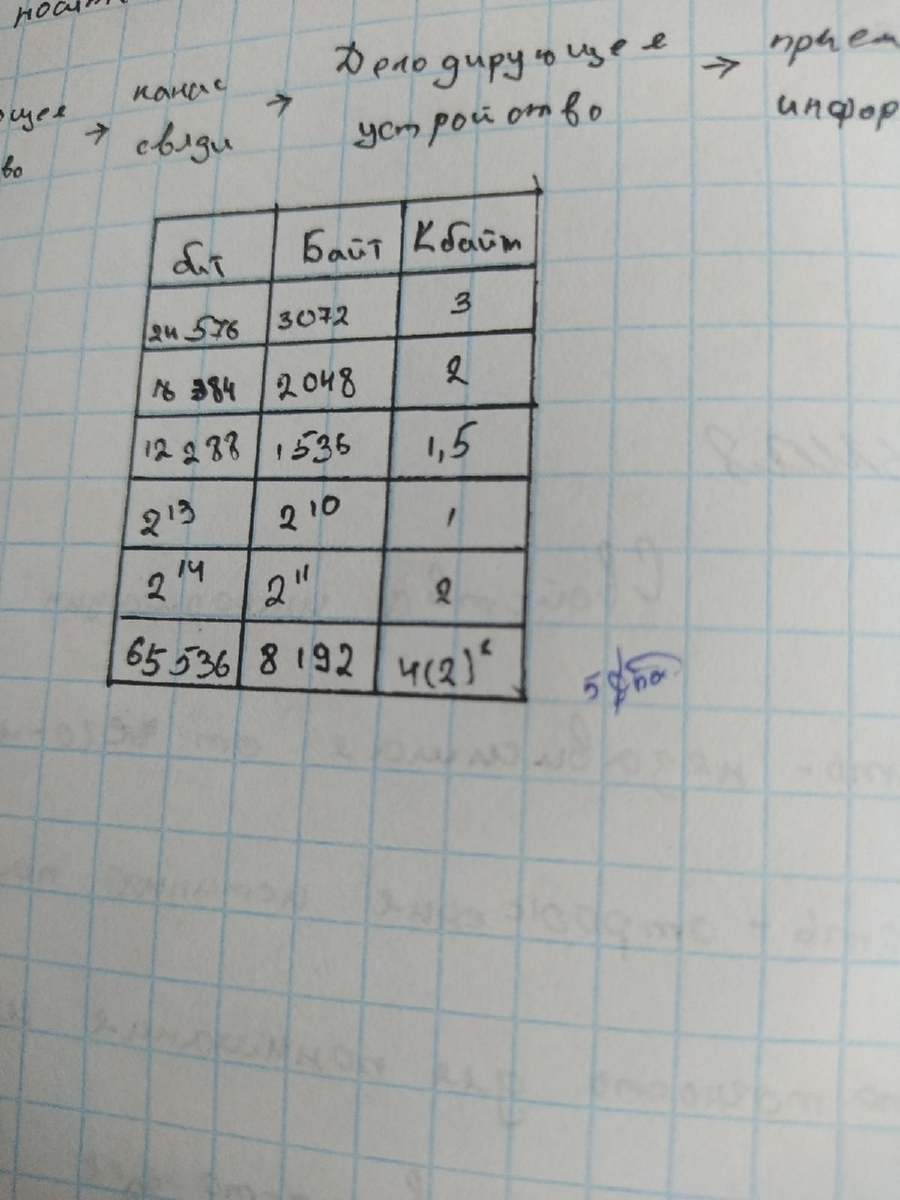 носит
ющее
во
→
канал
связи
→
Декодирующее
устройство
→
прием
инфор
бит Байт Кбайт
24 576 3072 3
16 384 2048 2
12 288 1536 1,5
2¹³ 2¹⁰ 1
2¹⁴ 2¹¹ 2
65 536 8 192 4(2)
5